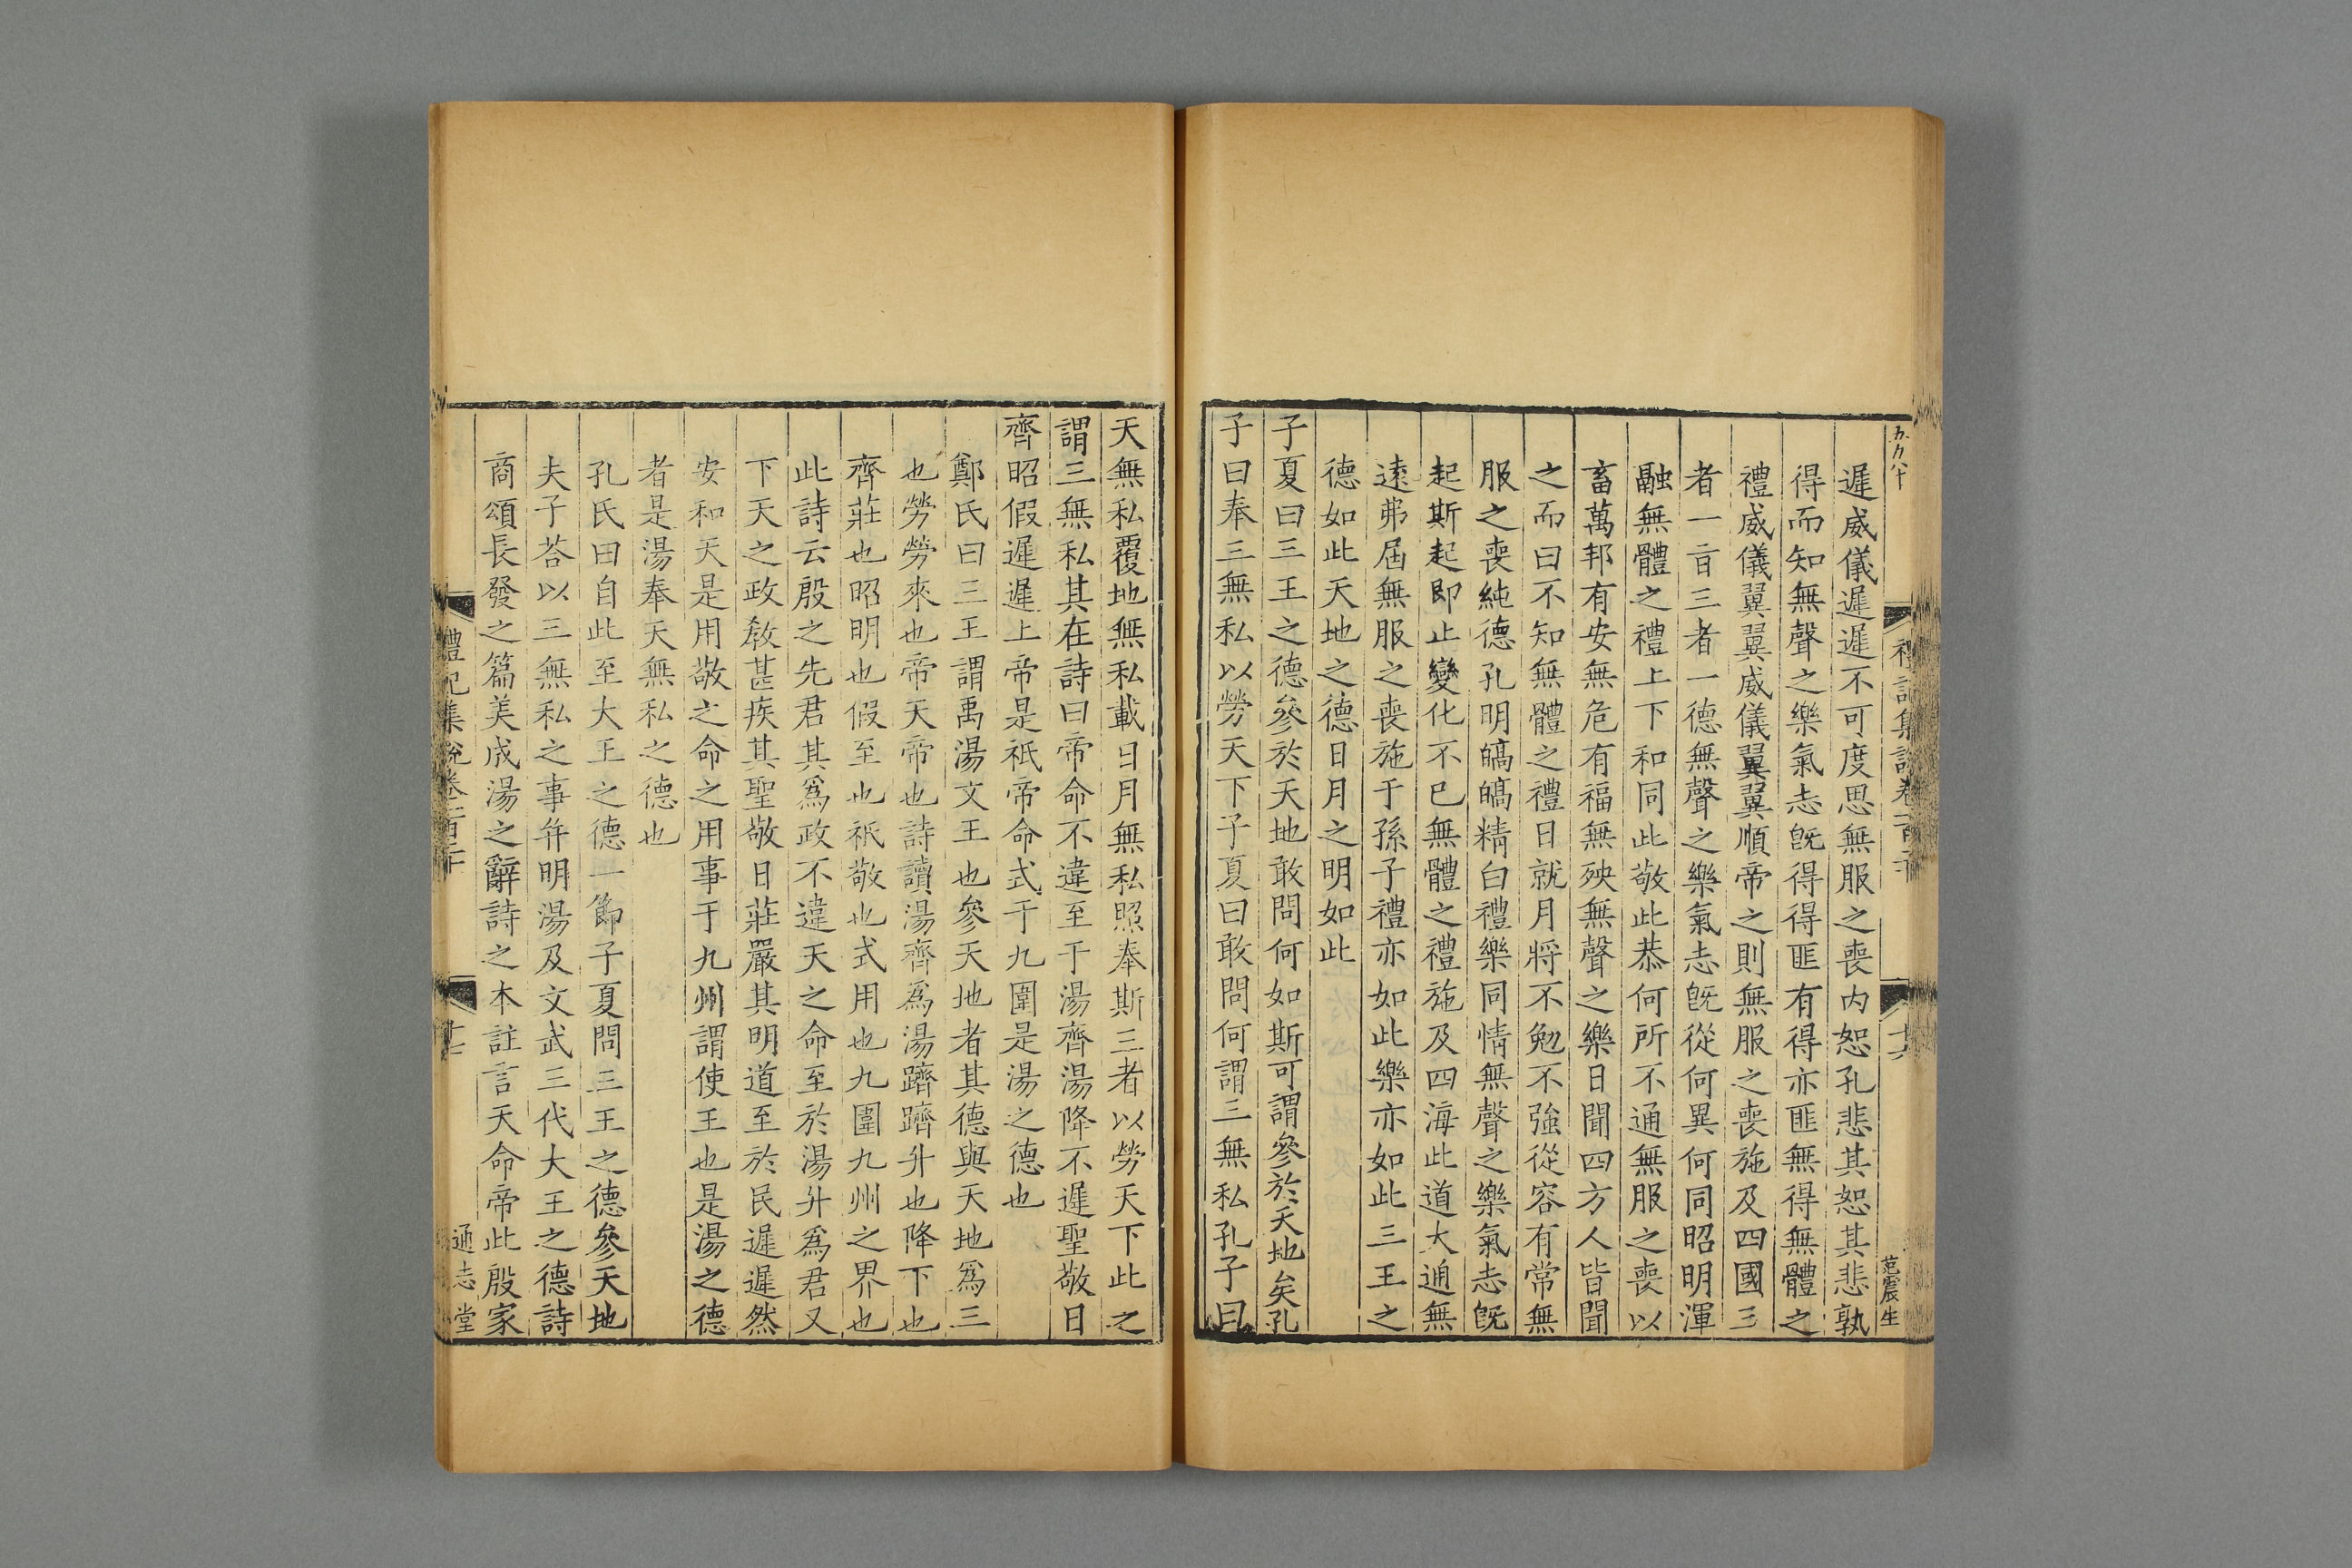 遲威儀遲遲不可度思無服之喪内恕孔悲其恕其悲孰
得而知無聲之樂氣志旣得得匪有得亦匪無得無體之
禮威儀翼翼威儀翼翼順帝之則無服之喪施及四國三
者一音三者一德無聲之樂氣志旣從何異何同昭明渾
融無體之禮上下和同此敬此恭何所不通無服之喪以
畜萬邦有安無危有福無殃無聲之樂日聞四方人皆聞
之而曰不知無體之禮日就月將不勉不強從容有常無
服之喪純德孔明皜皜精白禮樂同情無聲之樂氣志旣
起斯起即止變化不已無體之禮施及四海此道大通無
遠弗屆無服之喪施于孫子禮亦如此樂亦如此三王之
德如此天地之德日月之明如此
子夏曰三王之德參於天地敢問何如斯可謂參於天地矣孔
子曰奉三無私以勞天下子夏曰敢問何謂三無私孔子曰
范震生
天無私覆地無私載日月無私照奉斯三者以勞天下此之
謂三無私其在詩曰帝命不違至于湯齊湯降不遲聖敬日
齊昭假遲遲上帝是祗帝命式于九圍是湯之德也
鄭氏曰三王謂禹湯文王也參天地者其德與天地爲三
也勞勞來也帝天帝也詩讀湯齊爲湯躋躋升也降下也
齊莊也昭明也假至也祗敬也式用也九圍九州之界也
此詩云殷之先君其爲政不違天之命至於湯升爲君又
下天之政敎甚疾其聖敬日莊嚴其明道至於民遲遲然
安和天是用敬之命之用事于九州謂使王也是湯之德
者是湯奉天無私之德也
孔氏曰自此至大王之德一節子夏問三王之德參天地
夫子荅以三無私之事并明湯及文武三代大王之德詩
商頌長發之篇美成湯之辭詩之本註言天命帝此殷家
禮記集說卷
通志堂